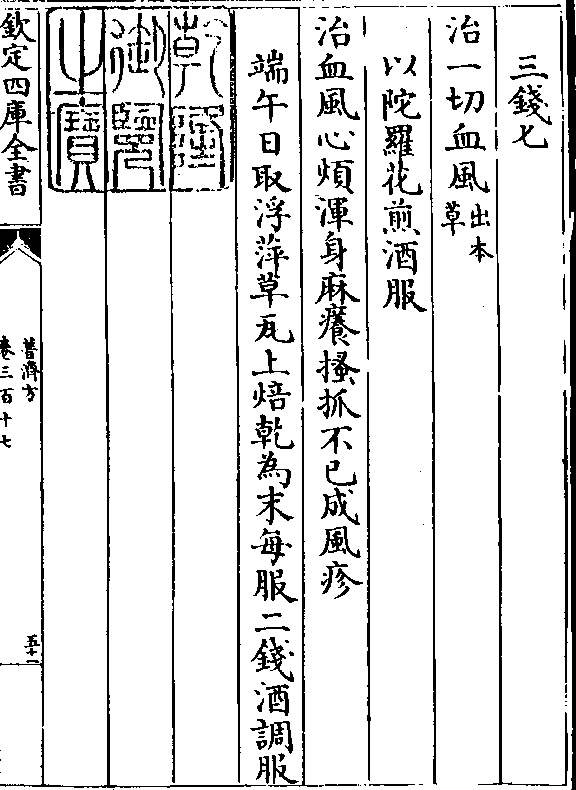 三錢匕
治一切血風出本草
以陀羅花煎酒服
治血風心煩渾身麻癢搔抓不已成風疹
端午日取浮萍草瓦上焙乾為末每服二錢酒調服
乾隆御覽之寶
欽定四庫全書
普濟方
卷三百十七